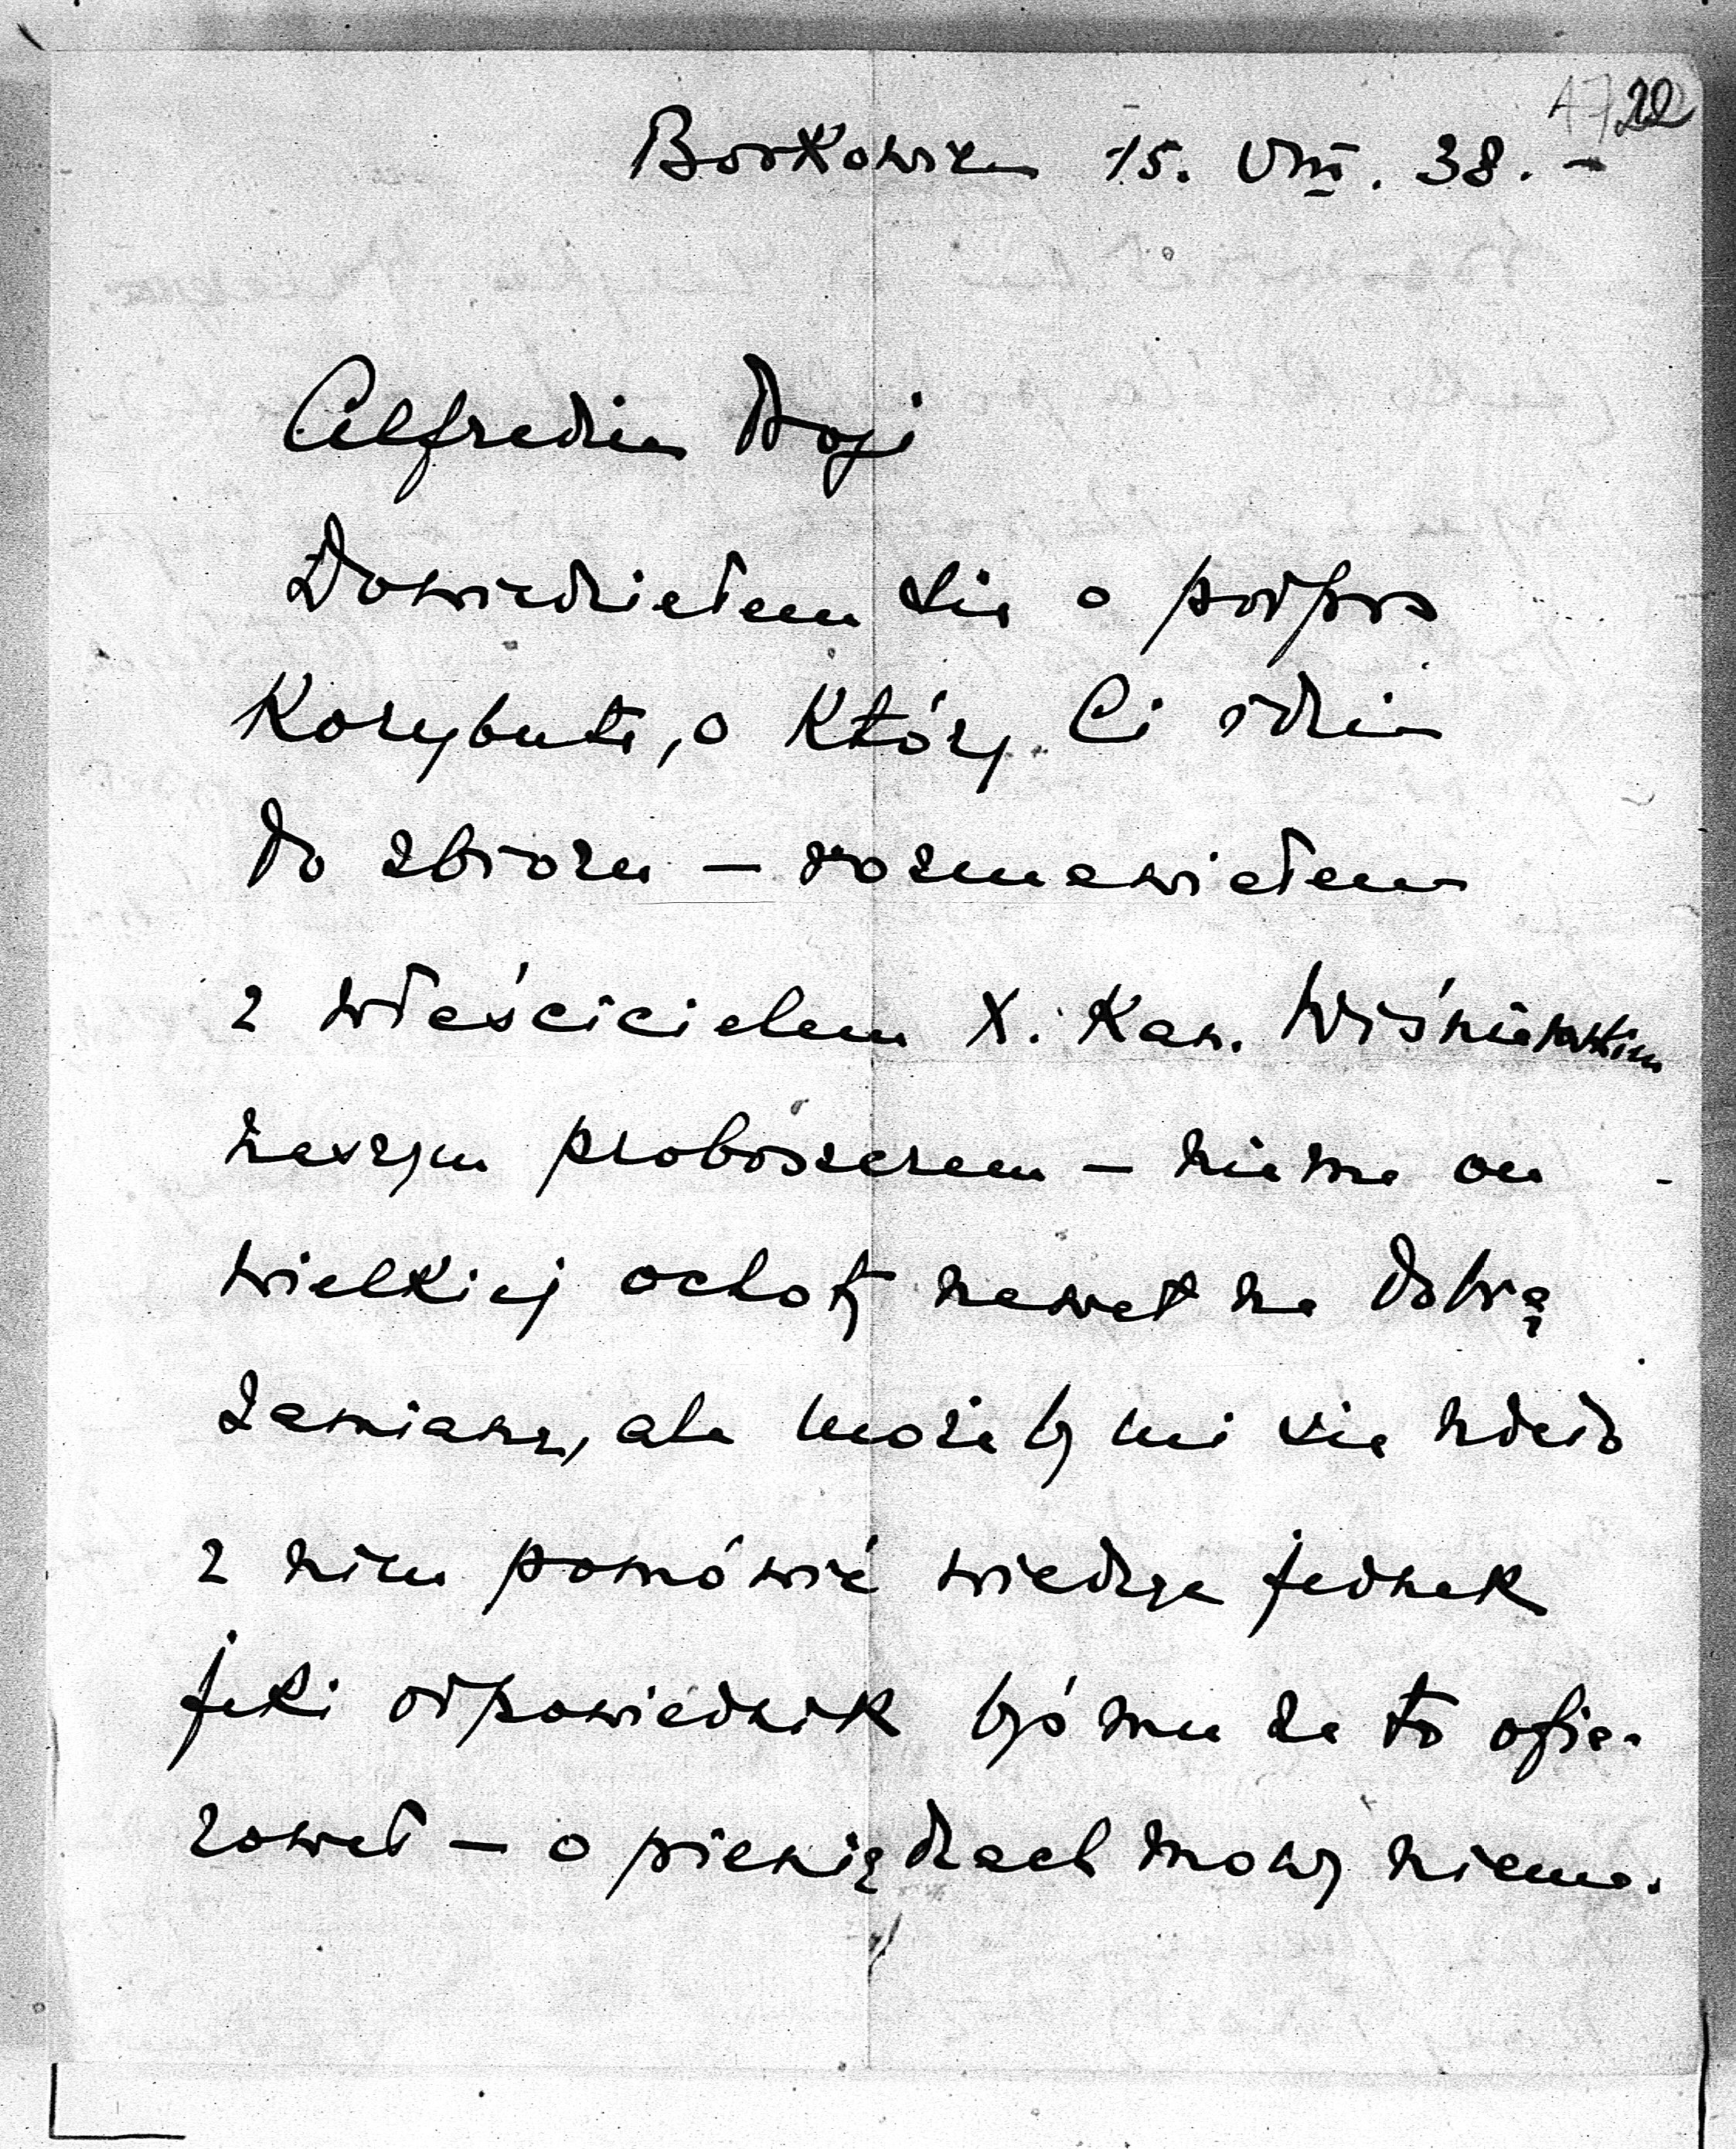 22
Borkowice 15. VIII. 38. –
Alfredzie Drogi
Dowiedziałem się o podpis
Korybuta, o który Ci idzie
do zbioru – rozmawiałem
z właścicielem X. Kan. Wiśniewskim
naszym proboszczem – niema on
wielkiej ochoty nawet na dobrą
zamianę, ale możeby mi się udało
z nim pomówić wiedząc jednak
jaki odpowiednik byś mu za to ofia-
rował – o pieniądzach mowy niema.